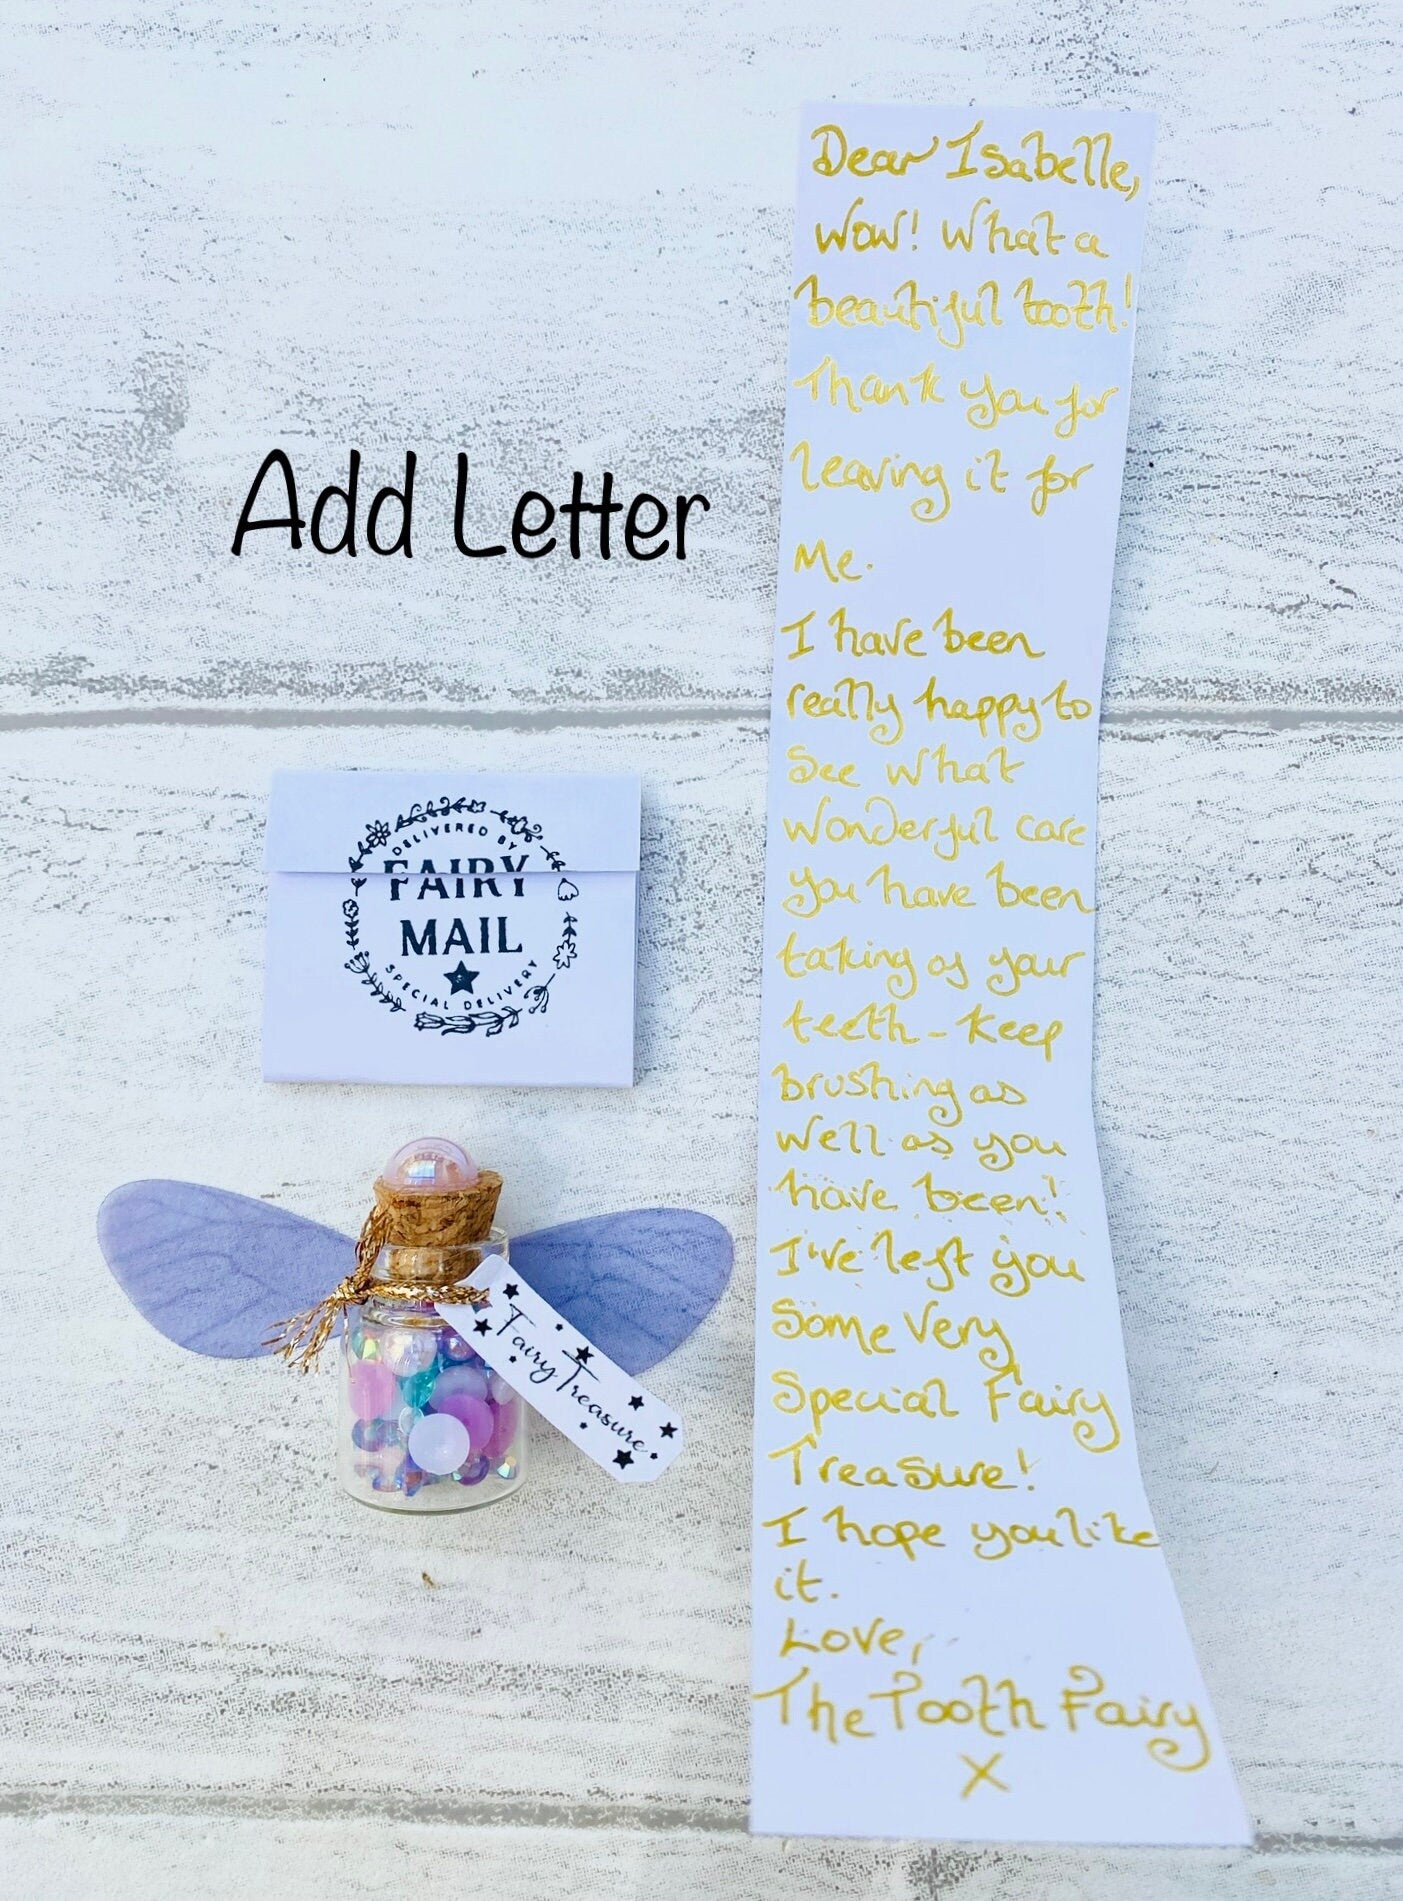 Add Letter
DELIVERED BY
FAIRY
MAIL
SPECIAL DELIVERY
Fairy Treasure
Dear Isabelle,
Wow! What a
beautiful tooth!
Thank you for
leaving it for
Me.
I have been
really happy to
See what
Wonderful care
you have been
taking of your
teeth - Keep
brushing as
well as you
have been!
I've left you
Some Very
Special Fairy
Treasure!
I hope you like
it.
Love,
The Tooth Fairy
X